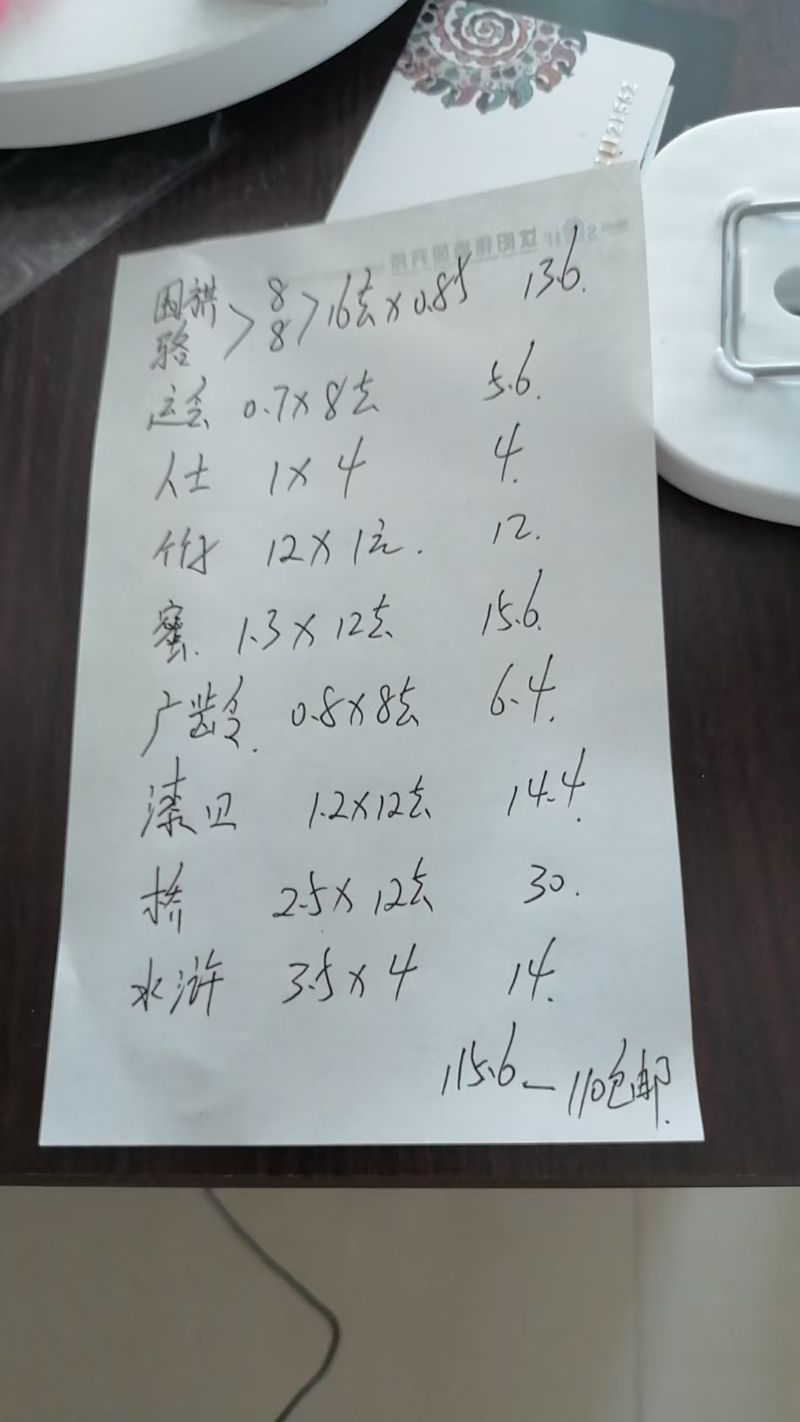 围棋 骆 > 8 8 > 16套×0.85 13.6.
运会 0.7×8套 5.6.
人士 1×4 4.
竹 12×1元. 12.
蜜. 1.3×12套 15.6.
广龄. 0.8×8套 6.4.
漆 1.2×12套 14.4.
桥 2.5×12套 30.
水浒 3.5×4 14.
115.6 — 110包邮.